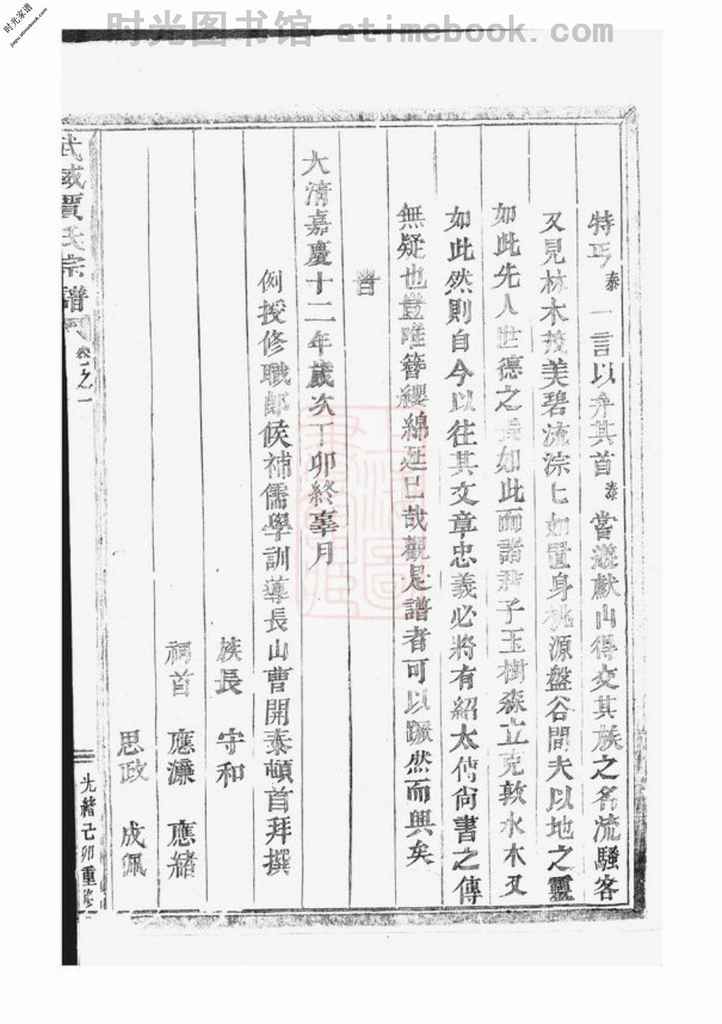 时光图书馆 - atimebook.com
时光家谱
jiapu.atimebook.com
特丐泰一言以弁其首泰當遊獻山得交其族之名流騷客
又見林木茂美碧流淙七如置身桃源盤谷間夫以地之靈
如此先人世德之長如此而諸君子玉樹森立克敦水木又
如此然則自今以往其文章忠義必將有紹太傅尚書之傳
無疑也豈唯簪纓綿延已哉觀是譜者可以蹶然而興矣
旹
大清嘉慶十二年歲次丁卯終辜月
例授修職郎候補儒學訓導長山曹開泰頓首拜撰
族長 守和
祠首 應濂 應緒
思政 成佩
武威賈氏宗譜 卷之一
光緒己卯重修